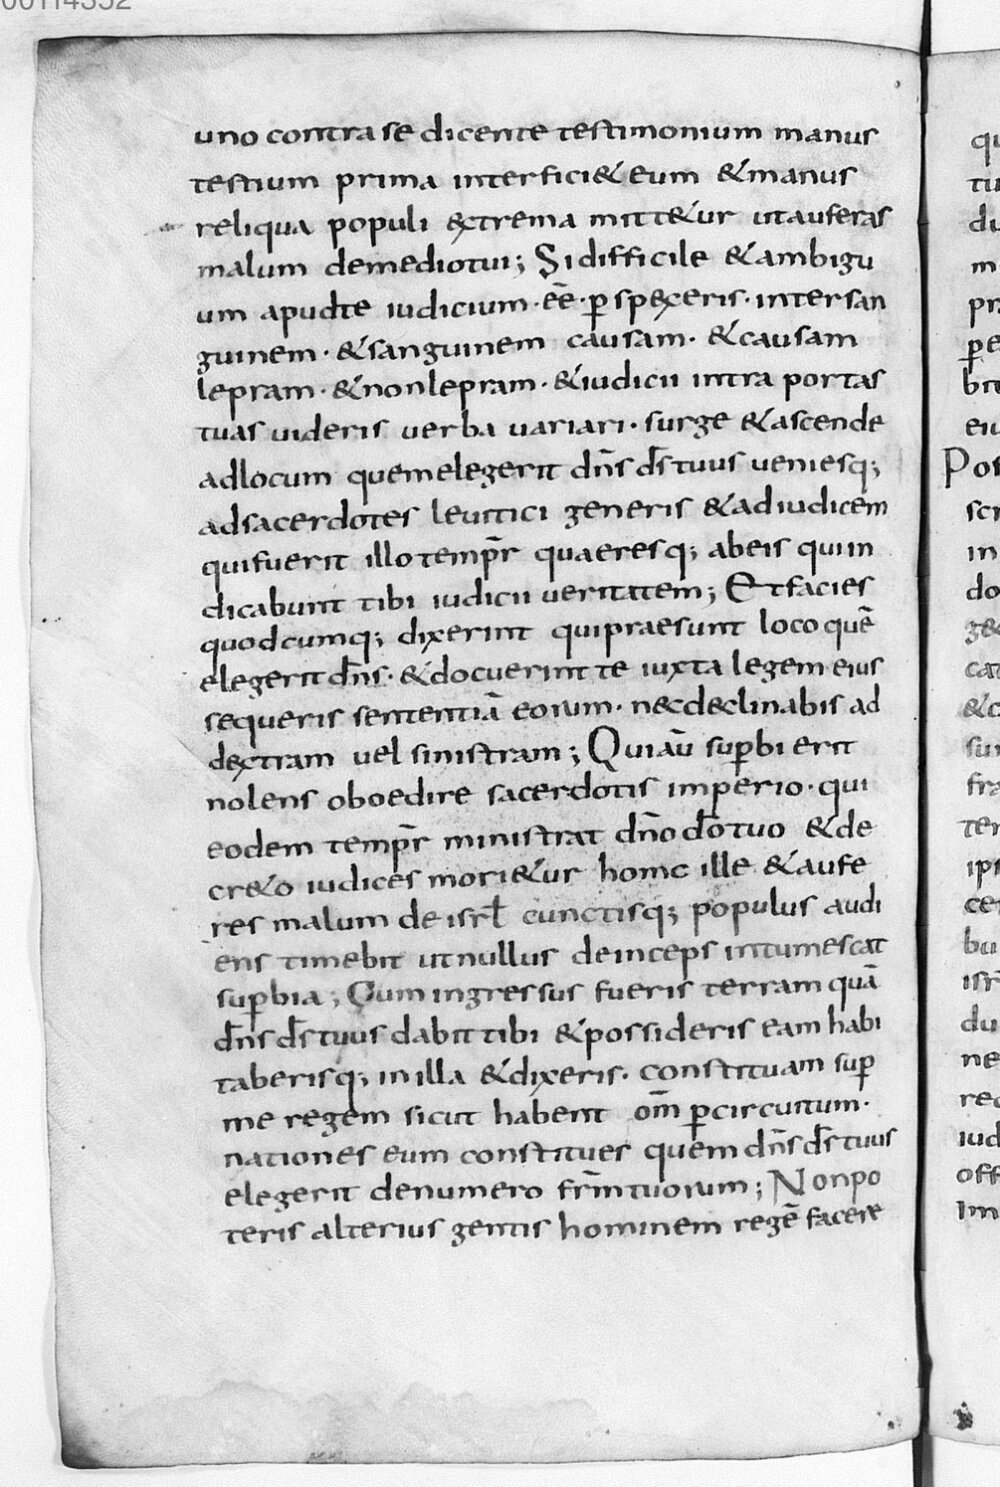 uno contra se dicente testimonium manus
testium prima interfici& eum & manus
reliqua populi extrema mitt&ur ut auferas
malum demediotui; Si difficile & ambigu
um apudte iudicium · eē · p̲spexeris · inter san
guinem · & sanguinem causam · & causam
lepram · & nonlepram · & iudicii intra portas
tuas uideris uerba uariari · surge & ascende
adlocum quemelegerit dn̄s ds̄ tuus veniesq;
adsacerdotes leuitici generis & ad iudicem
quifuerit illo temp̄r quaeresq; abeis qui in
dicabunt tibi iudicii ueritatem; Et facies
quodcumq; dixerint quipraesunt loco quē
elegerit dn̄s · & docuerint te iuxta legem eius
sequeris sententiā eorum · nec declinabis ad
dextram uel sinistram; Qui aū sup̲bi erit
nolens oboedire sacerdotis imperio · qui
eodem temp̄r ministrat dn̄o dō tuo & de
cr&o iudices mori&ur homo ille & aufe
res malum de isrl̄ cunctisq; populus audi
ens timebit ut nullus deinceps intumescat
sup̲bia; Cum ingressus fueris terram quā
dn̄s ds̄ tuus dabit tibi & possideris eam habi
taberisq; in illa & dixeris · constituam sup̲
me regem sicut habent om̄ p̲circuitum ·
nationes eum constitues quem dn̄s ds̄ tuus
elegerit denumero fr̄m tuorum; Nonpo
teris alterius gentis hominem regē facere